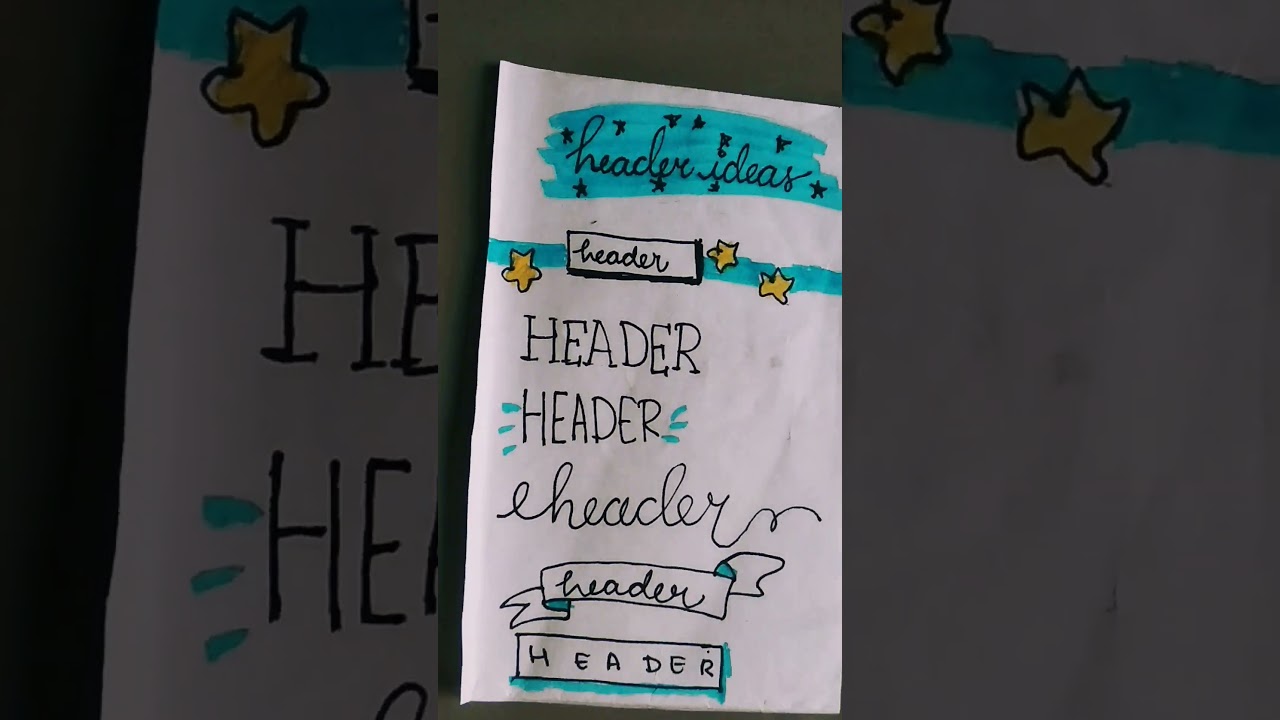 header ideas
header
HEADER
HEADER
header
header
HEADER